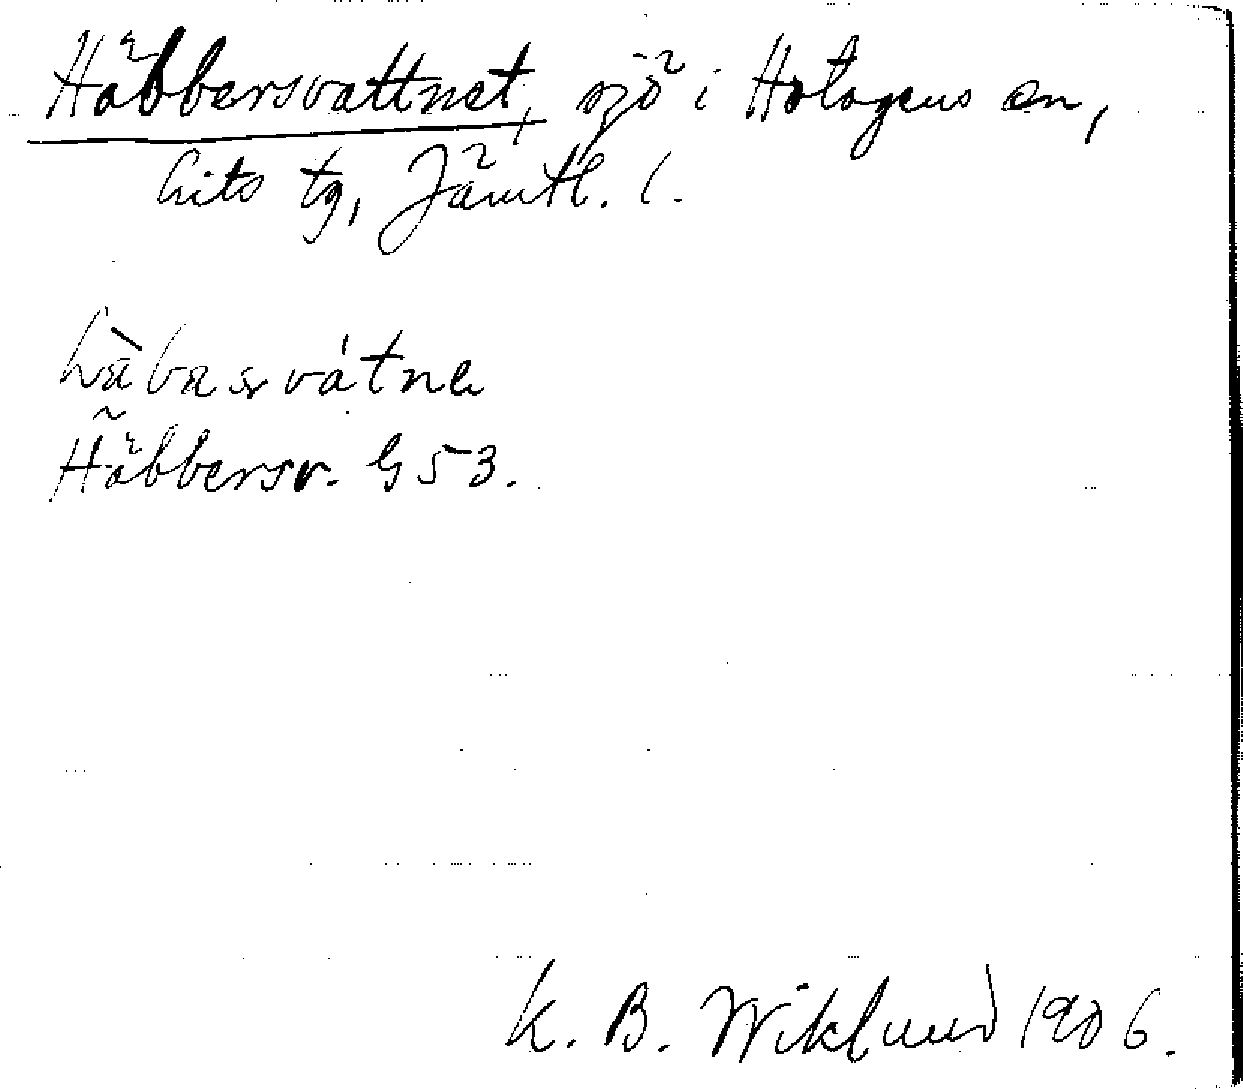 Häbbersvattnet, sjö i Hotagens sn,
Lits tg, Jämtl. l.
hàbasvátne
Häbbersv. G 53.
K. B. Wiklund 1906.